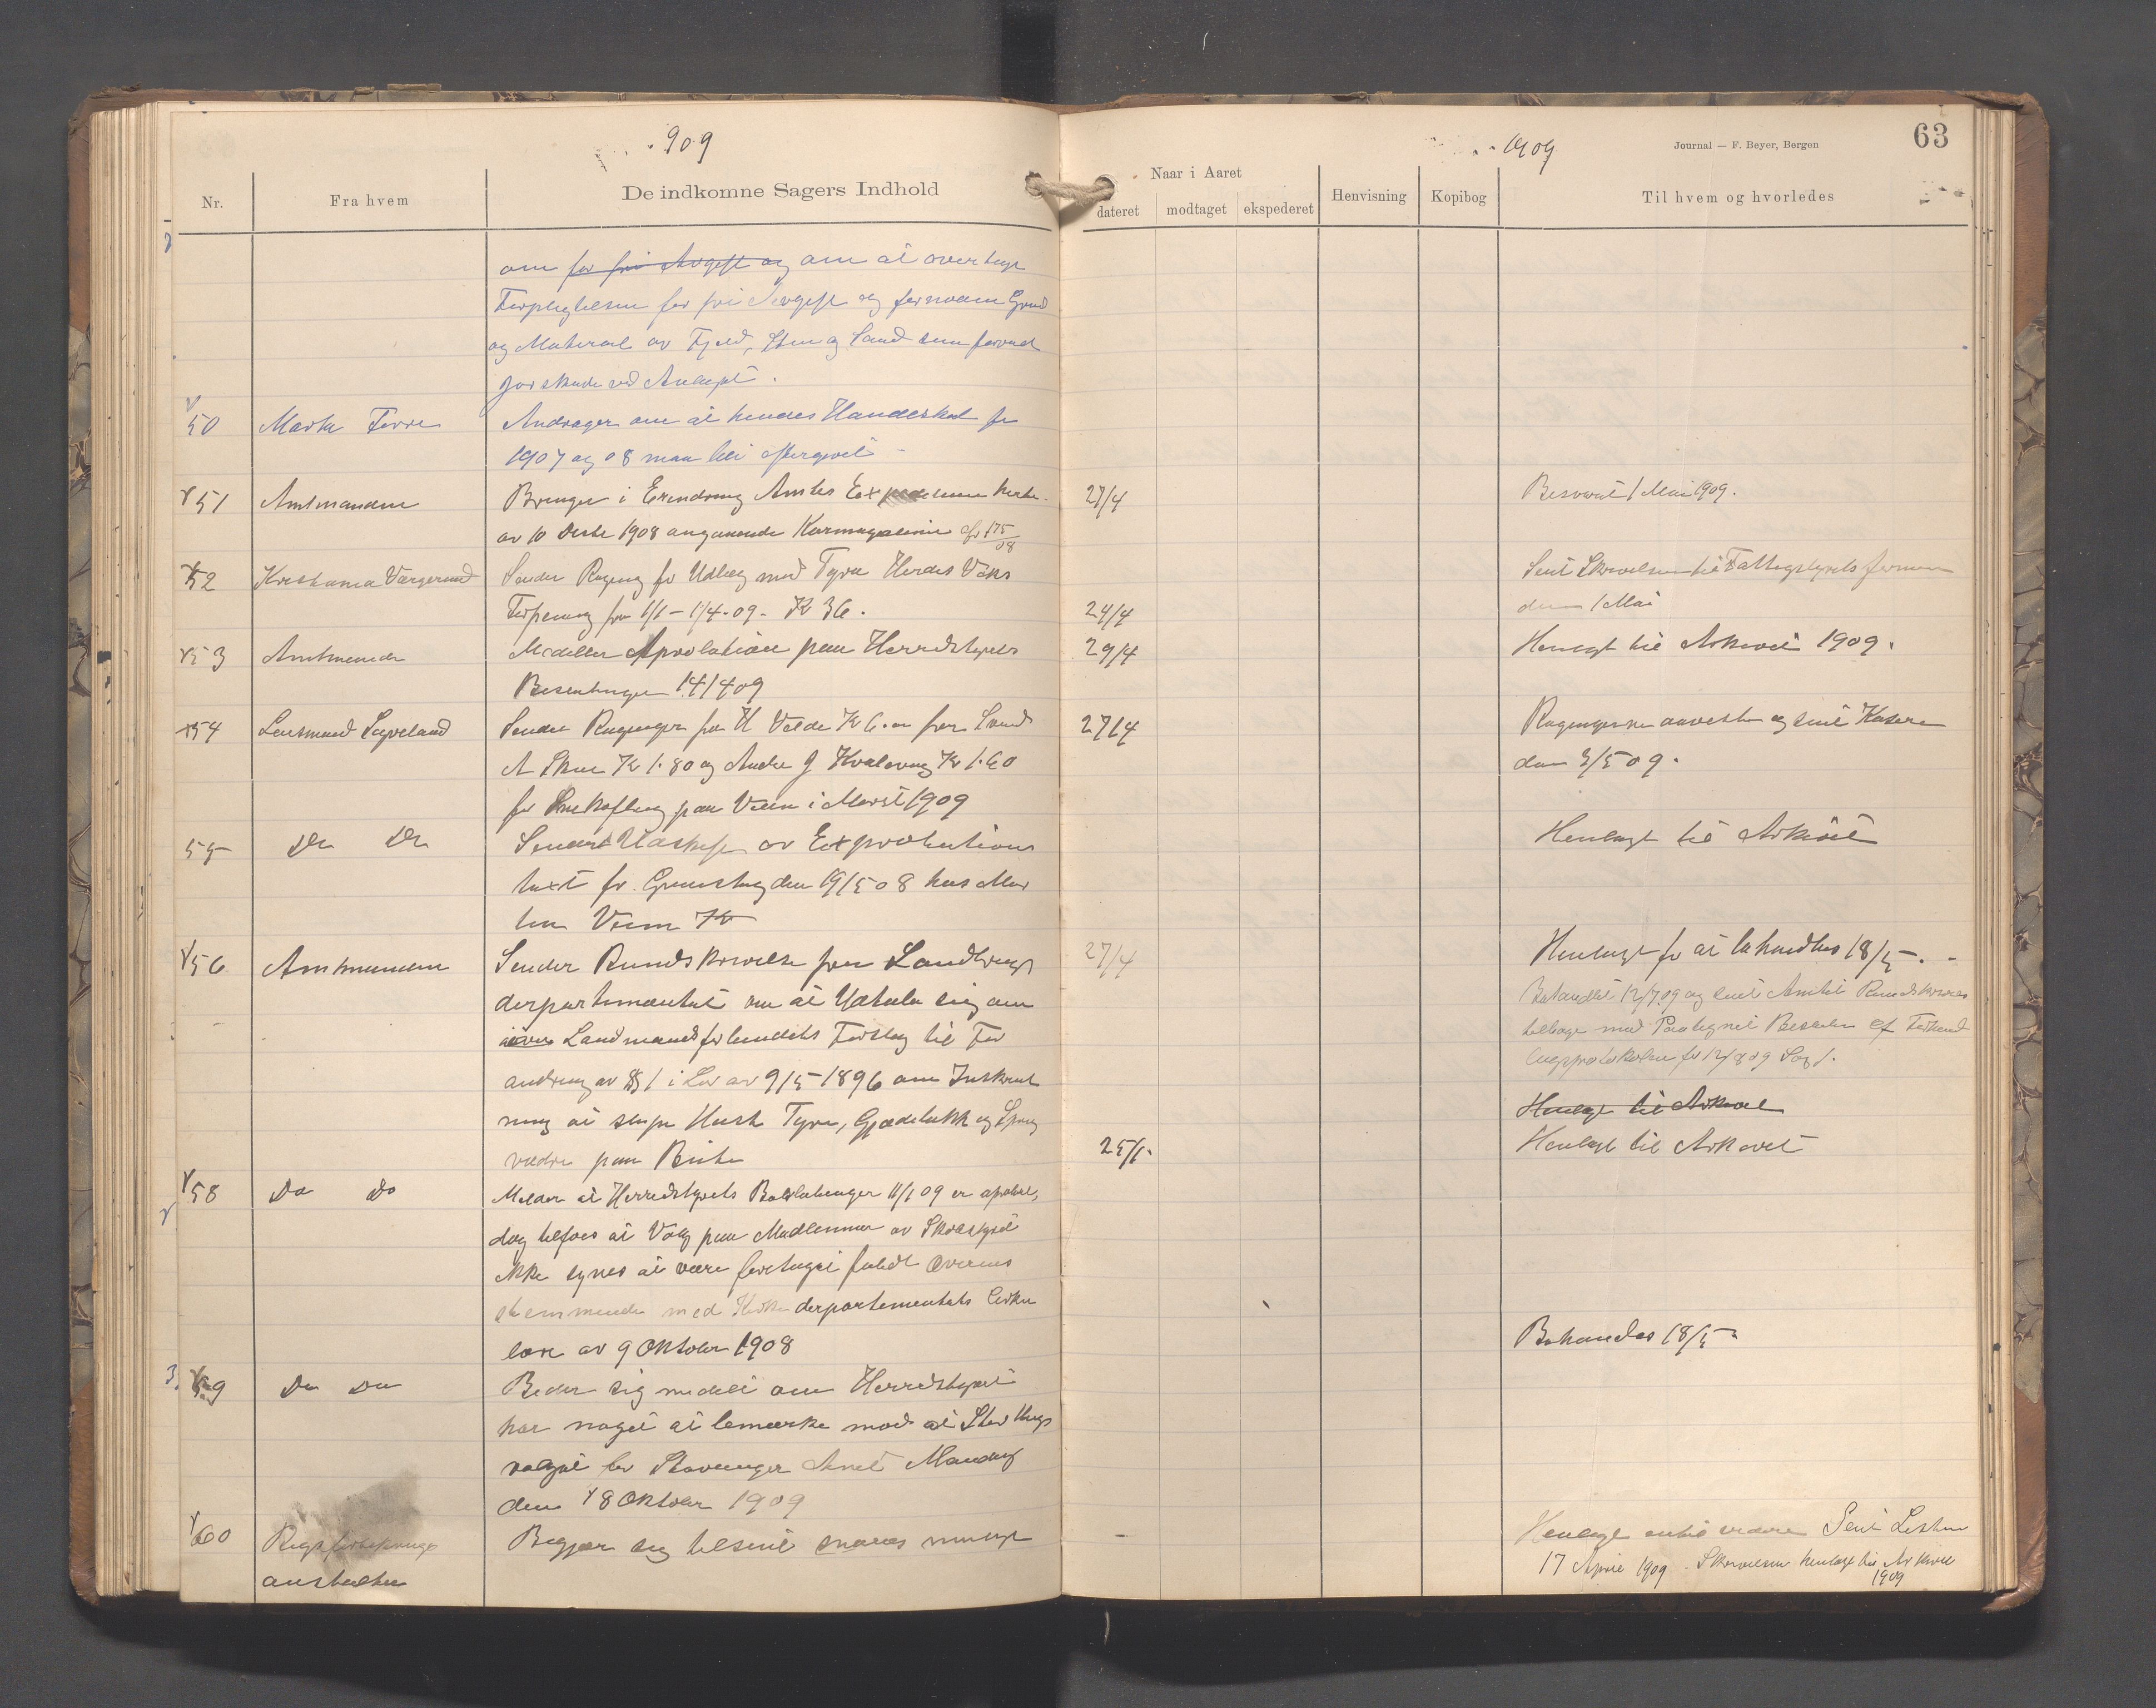 909
Nr.
Fra hvem
De indkomne Sagers Indhold
om for fri Avgift og om at overtage
Forpligtelsen for fri Avgift og fornøden Grund
og Material av Fjeld, Sten og Sand som forvol
gor skade ved Anlægget.
50 Marta Ferre Andrager om at hendes Handelskat for
1907 og 08 maa bli eftergivet
51 Amtmanden Bringer i Erindring Amtets Expedition herhe.
av 10 Decbr 1908 angaaende cfr 175/08
52 Kristiania Værgeraad Sender Regning for Utlæg med
Forpleining fra 1/1 - 1/4-09. Kr 36.
53 Amtmanden Meddeler Aprobation paa Herredstyrets
Beslutninger 14/4 09
54 Lensmand Sæveland Sender Regninger fra H Velde Kr 6.00 fra Svend
A Skre Kr 1.80 og Andre J Kvalevaag Kr 1.60
for Snekastning paa Veien i Marst 1909
55 Do Do Sender Utskrift av Expropriations
takst for Grunstag den 19/5 08 hos Mor
ten Veum Kr
56 Amtmanden Sender Rundskrivelse fra Landbrugs
departementet om at Uttale sig om
Landmandsforbundets Forslag til For
andring av §1 i Lov av 9/5-1896 om Indskrænk
ning at slippe Heste Tyrer, Gjedebukk og
vædre paa Beite
58 Do Do Melder at Herredstyrets Beslutninger 11/1 09 er aprobert,
dog tilføies at Valg paa Medlemmer av Skolestyret
ikke synes at være foretaget fuldt overens
stemmende med Kirkedepartementets Cirku
lære av 9 Oktober 1908
59 Do Do Beder sig meddelt om Herredstyret
har noget at bemærke mod at Stortings
valget for Stavanger Amt Mandag
den 18 Oktober 1909
60 Rigsforsikrings
anstalten Begjær sig tilsent snarest muligt
1909
Journal — F. Beyer, Bergen
63
Naar i Aaret
dateret
modtaget
ekspederet
Henvisning
Kopibog
Til hvem og hvorledes
27/4 Besvaret 1 Mai 1909.
Sent Skrivelsen til Fattigstyrets formand
24/4 den 1 Mai
29/4 Henlagt til Arkivet 1909.
27/4 Regningerne anvist og sent Kasere
den 3/5 09.
Henlagt til Arkivet
27/4 Henlagt for at behandles 18/5.
Behandlet 12/7.09 og sent Amtet Rundskrivelsen
tilbage med Paategnet Beslutn cf Forhand
lingsprotokollen for 12/7 09 Sag 1.
Henlagt til Arkivet
25/1. Henlagt til Arkivet
Behandles 18/5
Henlagt indtil videre Sent Listen
17 April 1909. Skrivelsen henlagt til Arkivet
1909